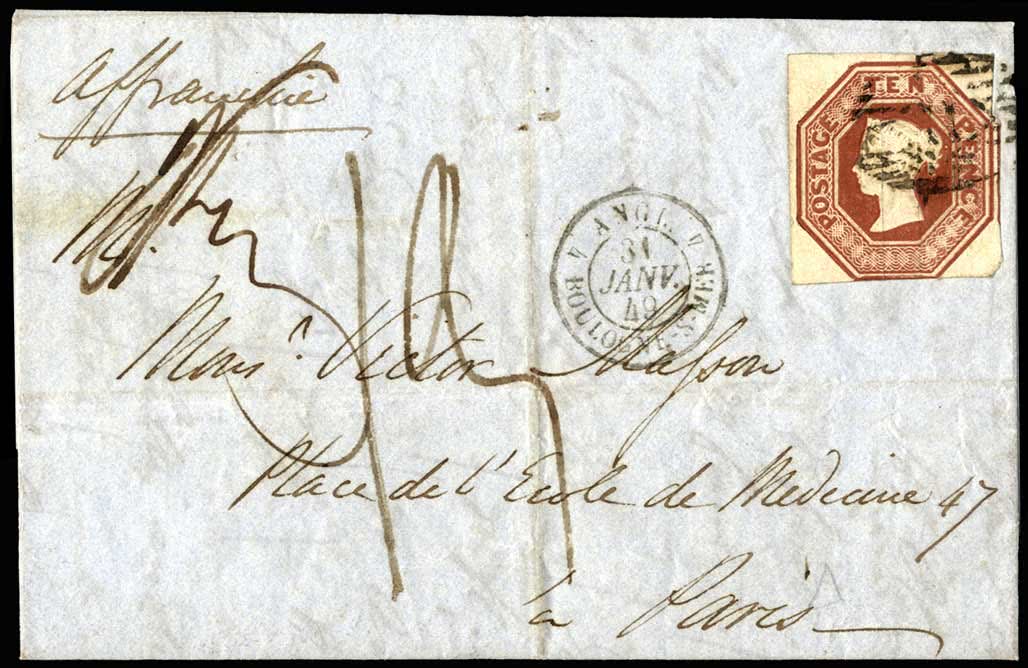 Affranchie
TEN
POSTAGE
PENCE
ANGL.
31
JANV.
49
BOULOGNE-S-MER
M.
Monsr. Victor Masson
Place de l'Ecole de Medecine 47
à Paris